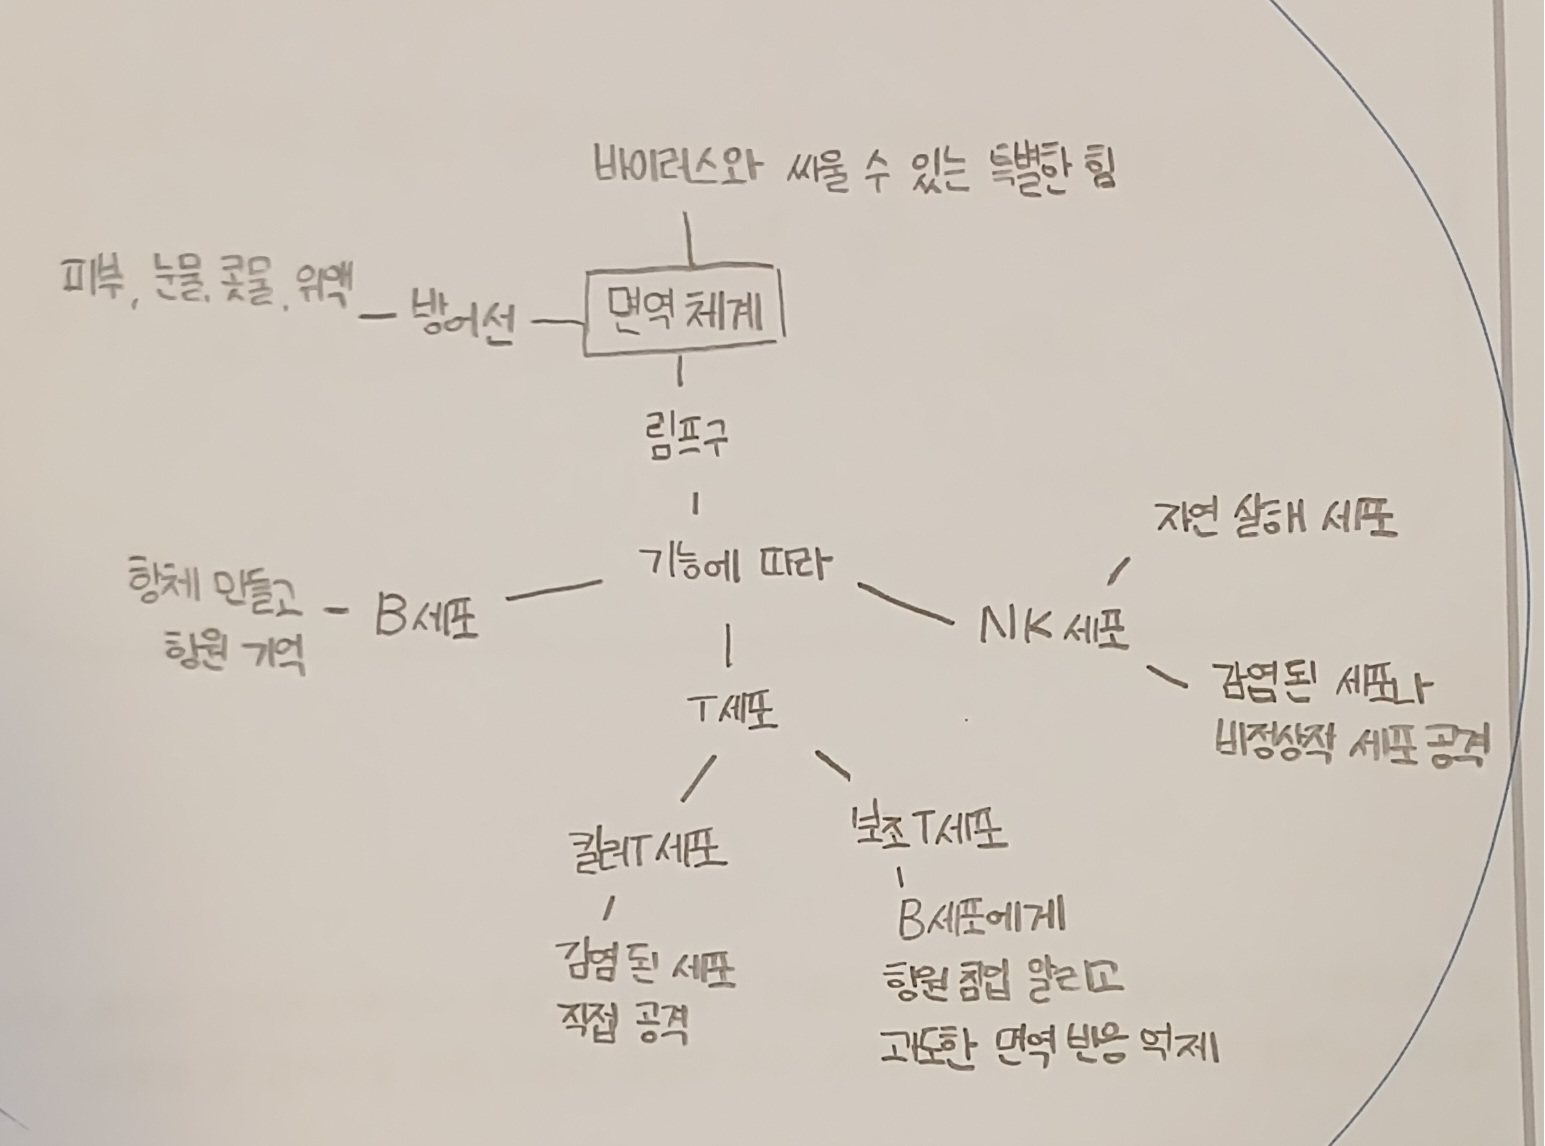 바이러스와 싸울 수 있는 특별한 힘
피부, 눈물, 콧물, 위액 - 방어선 - 면역 체계
림프구
기능에 따라
항체 만들고
항원 기억
B세포
T세포
킬러T세포
감염된 세포
직접 공격
보조T세포
B세포에게
항원 침입 알리고
과도한 면역 반응 억제
NK 세포
자연 살해 세포
감염된 세포나
비정상적 세포 공격